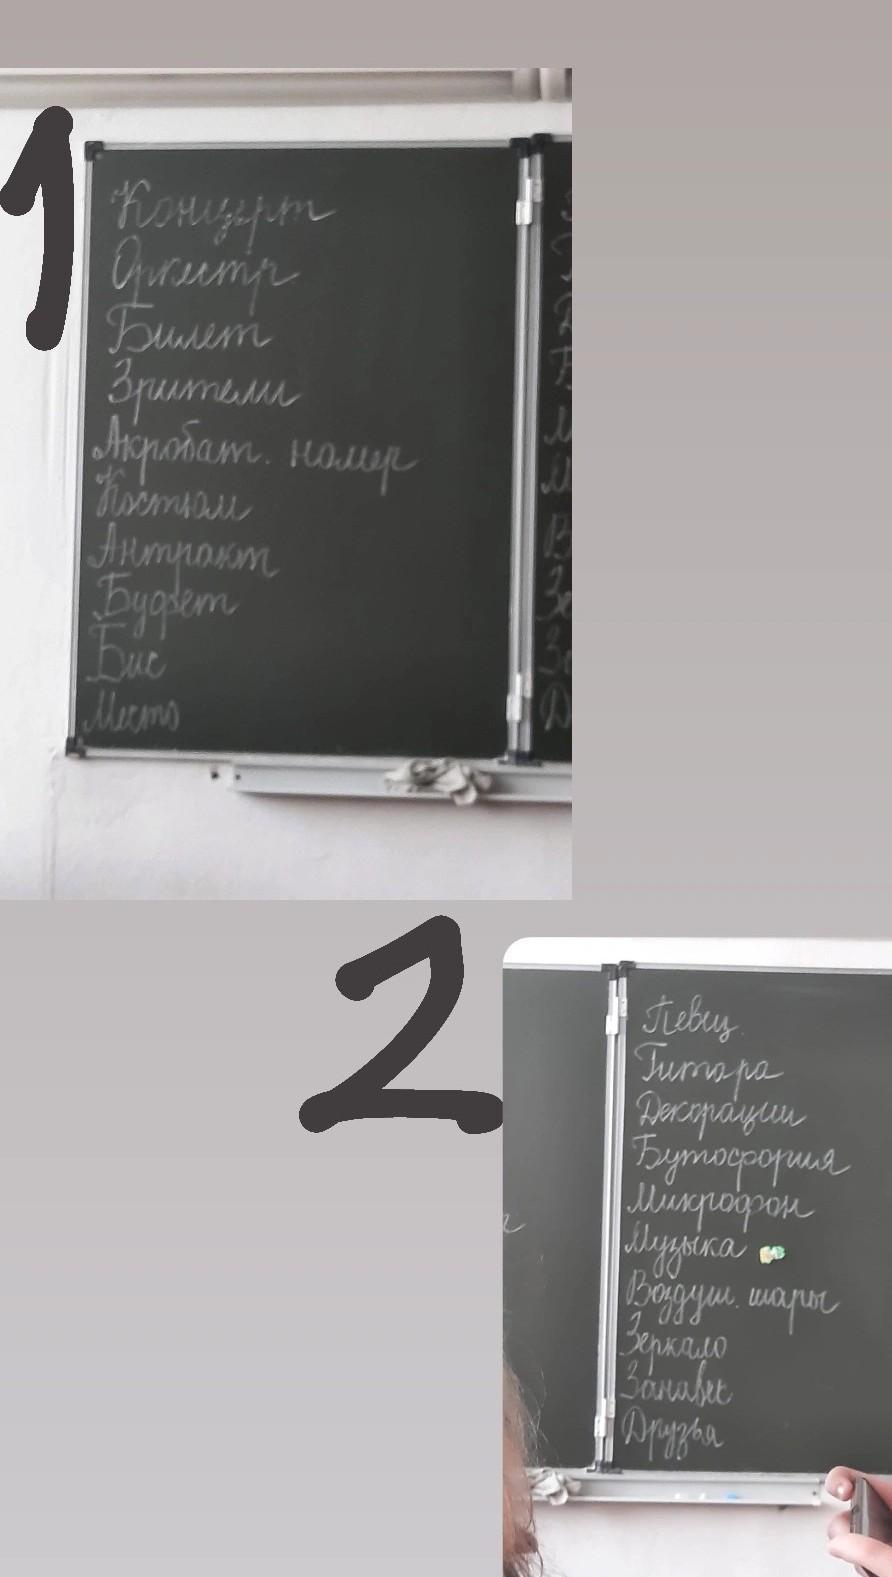 1
Концерт
Оркестр
Билет
Зрители
Акробат. номер
Костюм
Антракт
Буфет
Бис
Место
2
Певец
Гитара
Декорации
Бутофория
Микрофон
Музыка
Воздуш. шары
Зеркало
Занавес
Друзья